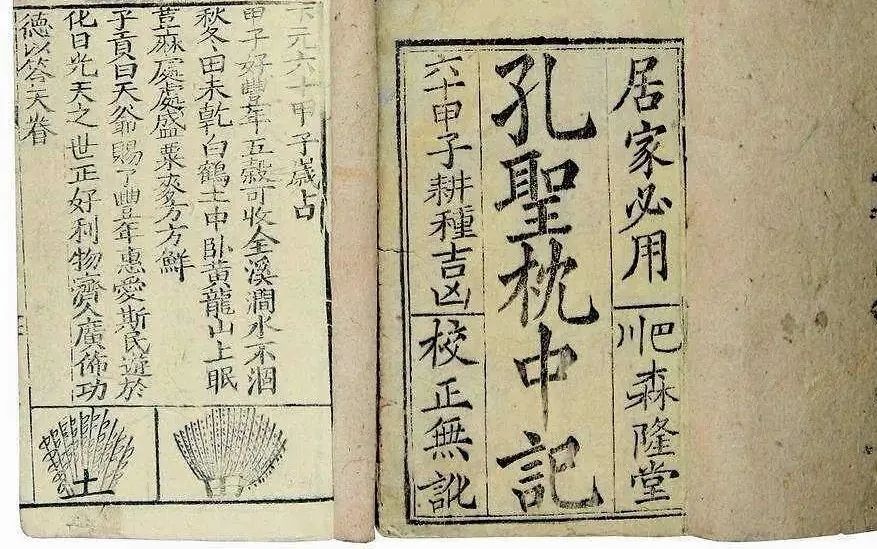 居家必用
巴川森隆堂
孔聖枕中記
六十甲子耕種吉凶
校正無訛
下元六十甲子歲占
甲子好豐年五穀可收全溪澗水不涸
秋冬田未乾白鶴土中卧黃龍山上眠
荳麻處處盛粟麥方方鮮
子貢曰天爺賜了豐年惠愛斯民遊於
化日光天之世正好利物濟人廣佈功
德以答天眷
土